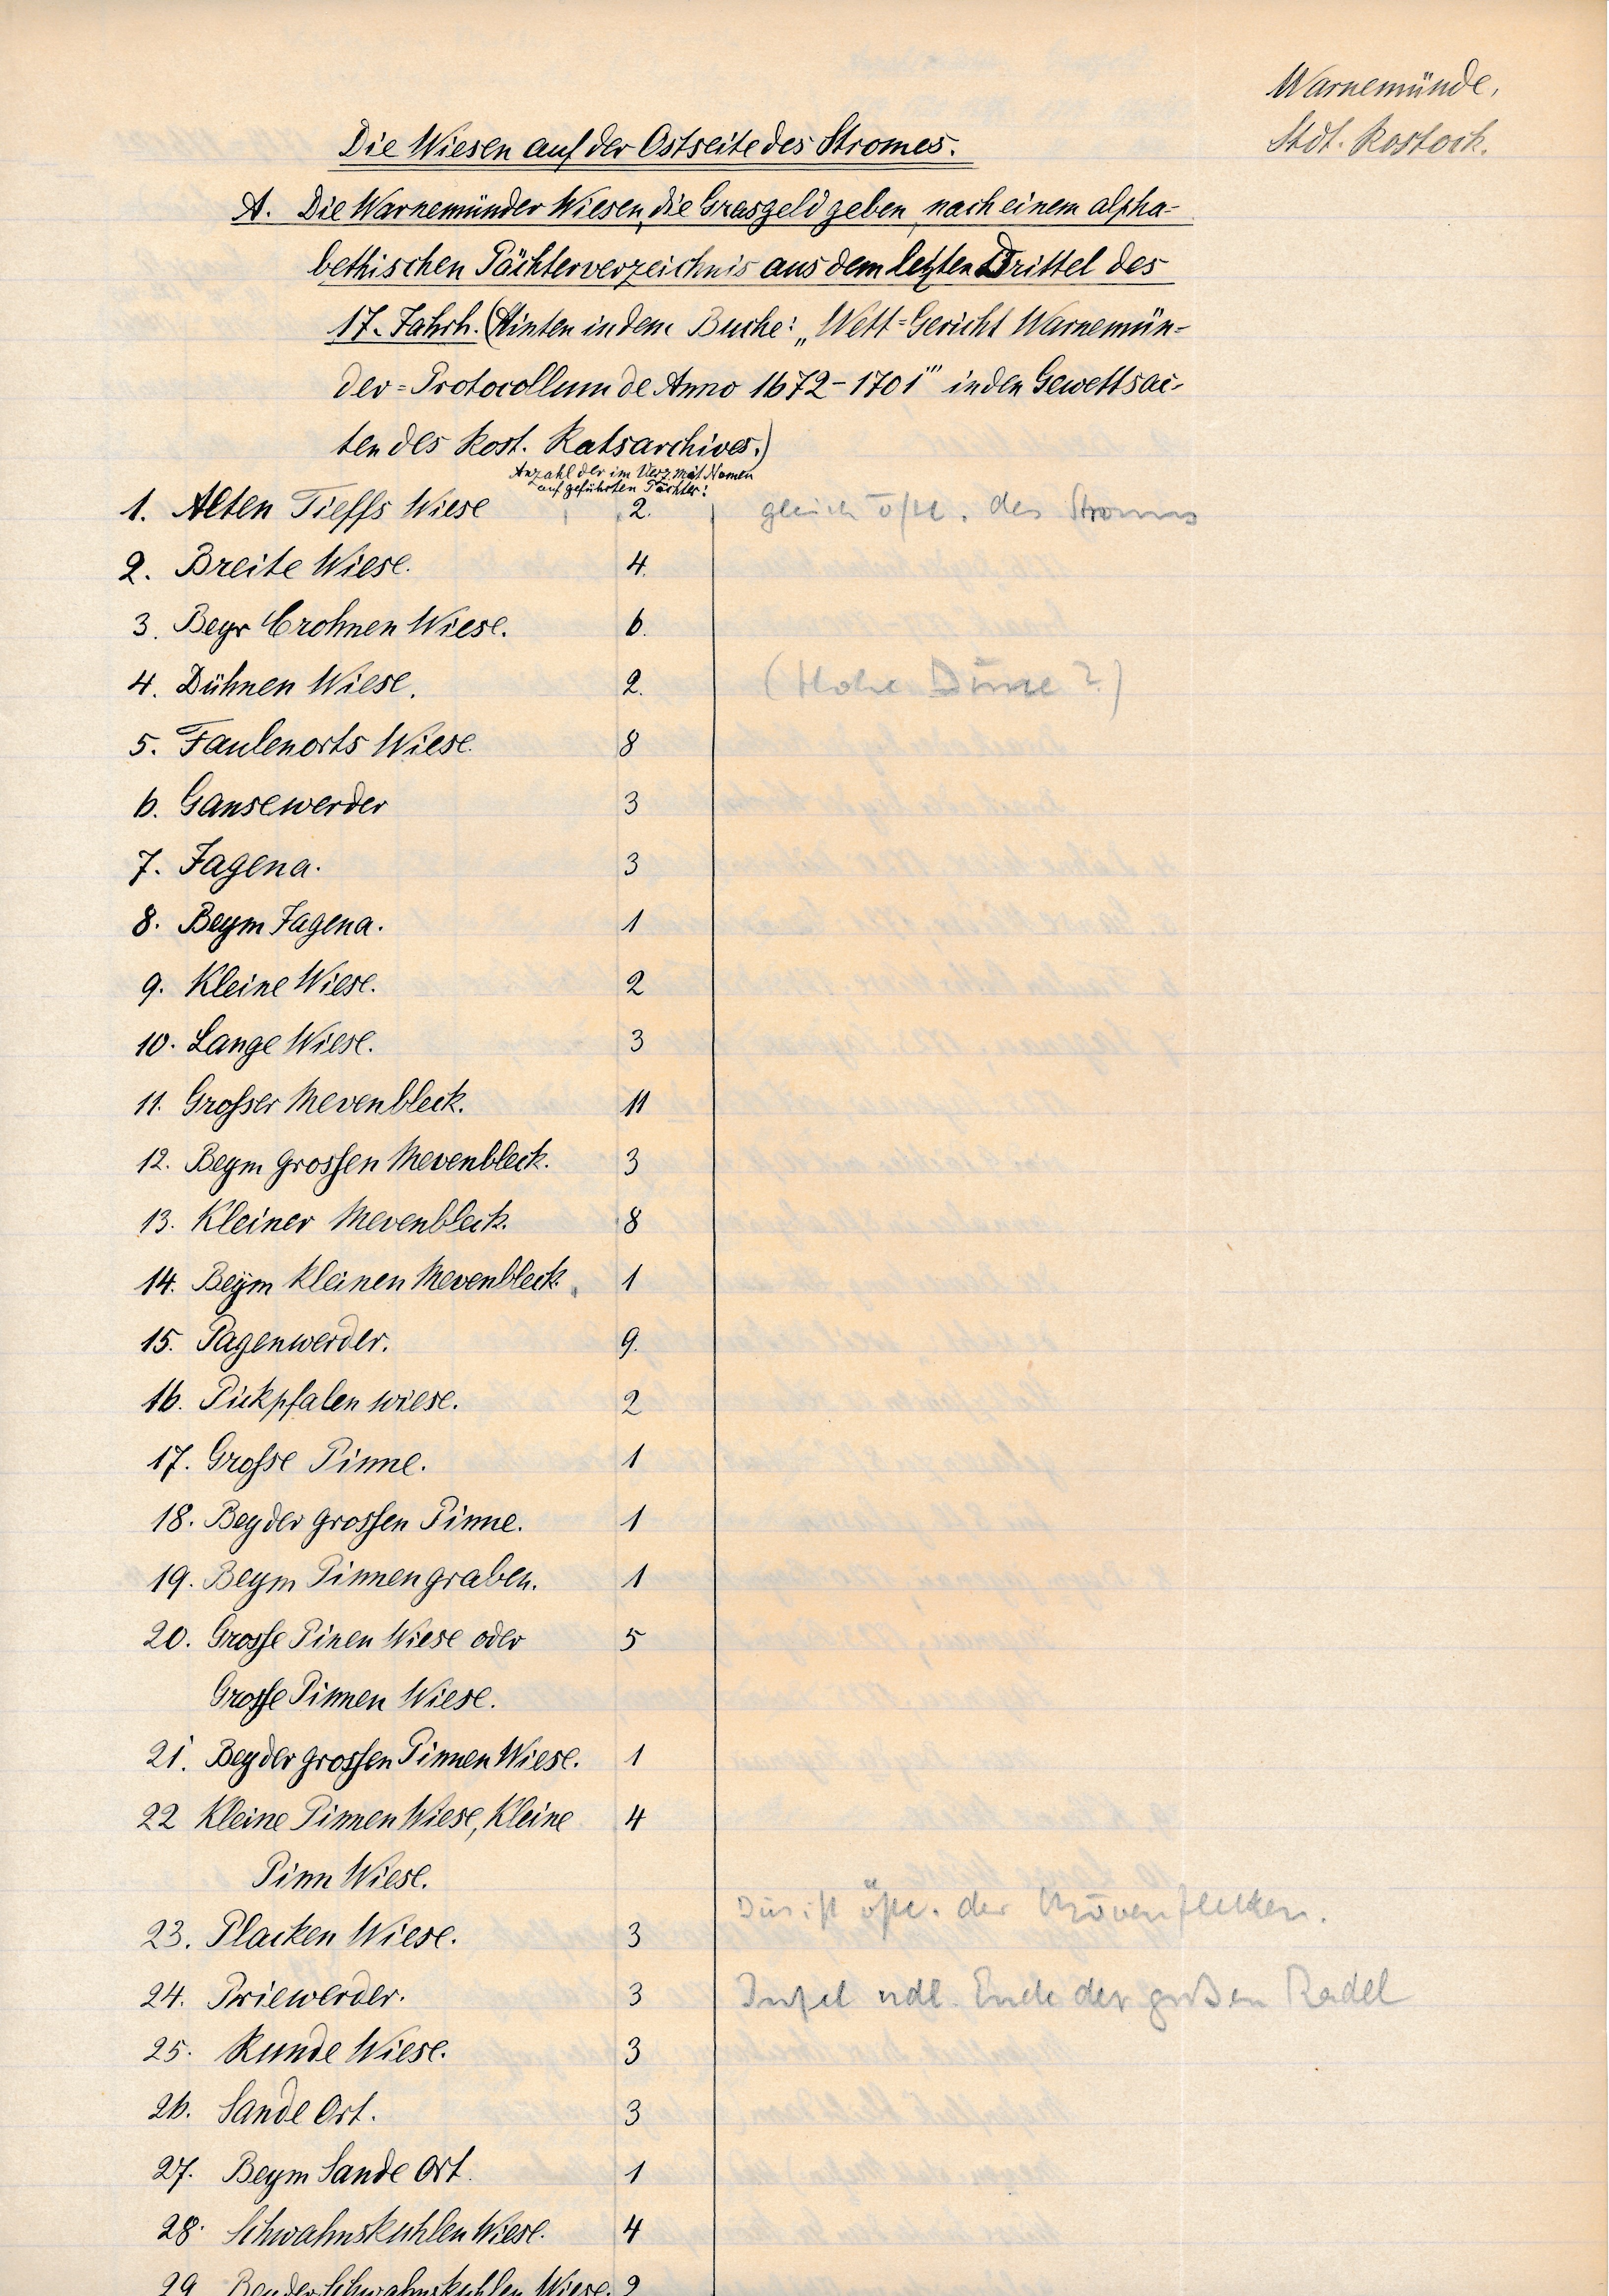 Warnemünde,
Stdt. Rostock.
Die Wiesen auf der Ostseite des Stromes.
A. Die Warnemünder Wiesen, die Grasgeld geben, nach einem alpha-
bethischen Pächterverzeichnis aus dem letzten Drittel des
17. Jahrh. (Hinten in dem Buche: „Wett=Gericht Warnemün-
der=Protocollum de Anno 1672-1701" in den Gewettsac-
ten des Rost. Ratsarchives.)
Anzahl der im Verz. mit Namen
aufgeführten Pächter:
1. Alten Tieffs Wiese 2. gleich östl. des Stroms
2. Breite Wiese. 4.
3. Beyr Crohnen Wiese. 6.
4. Dühnen Wiese. 2. (Hohe Düne?)
5. Faulenorts Wiese. 8
6. Gansewerder 3
7. Jagena. 3
8. Beym Jagena. 1
9. Kleine Wiese. 2
10. Lange Wiese. 3
11. Grosser Mevenbleck. 11
12. Beym grossen Mevenbleck. 3
13. Kleiner Mevenbleck. 8
14. Beÿm kleinen Mevenbleck. 1
15. Pagenwerder. 9.
16. Pickpfalen wiese. 2
17. Grosse Pinne. 1
18. Bey der grossen Pinne. 1
19. Beym Pinnengraben. 1
20. Grosse Pinen Wiese oder 5
Grosse Pinnen Wiese.
21. Bey der grossen Pinnen Wiese. 1
22 Kleine Pinnen Wiese, Kleine 4
Pinn Wiese.
ist östl. der Mövenflecken.
23. Placken Wiese. 3
24. Priewerder. 3 Insel ndl. Ende der großen Radel
25. Runde Wiese. 3
26. Sande Ort. 3
27. Beym Sande Ort. 1
28. Schwahnskuhlen Wiese. 4
29. Bey der Schwahnskuhlen Wiese. 2